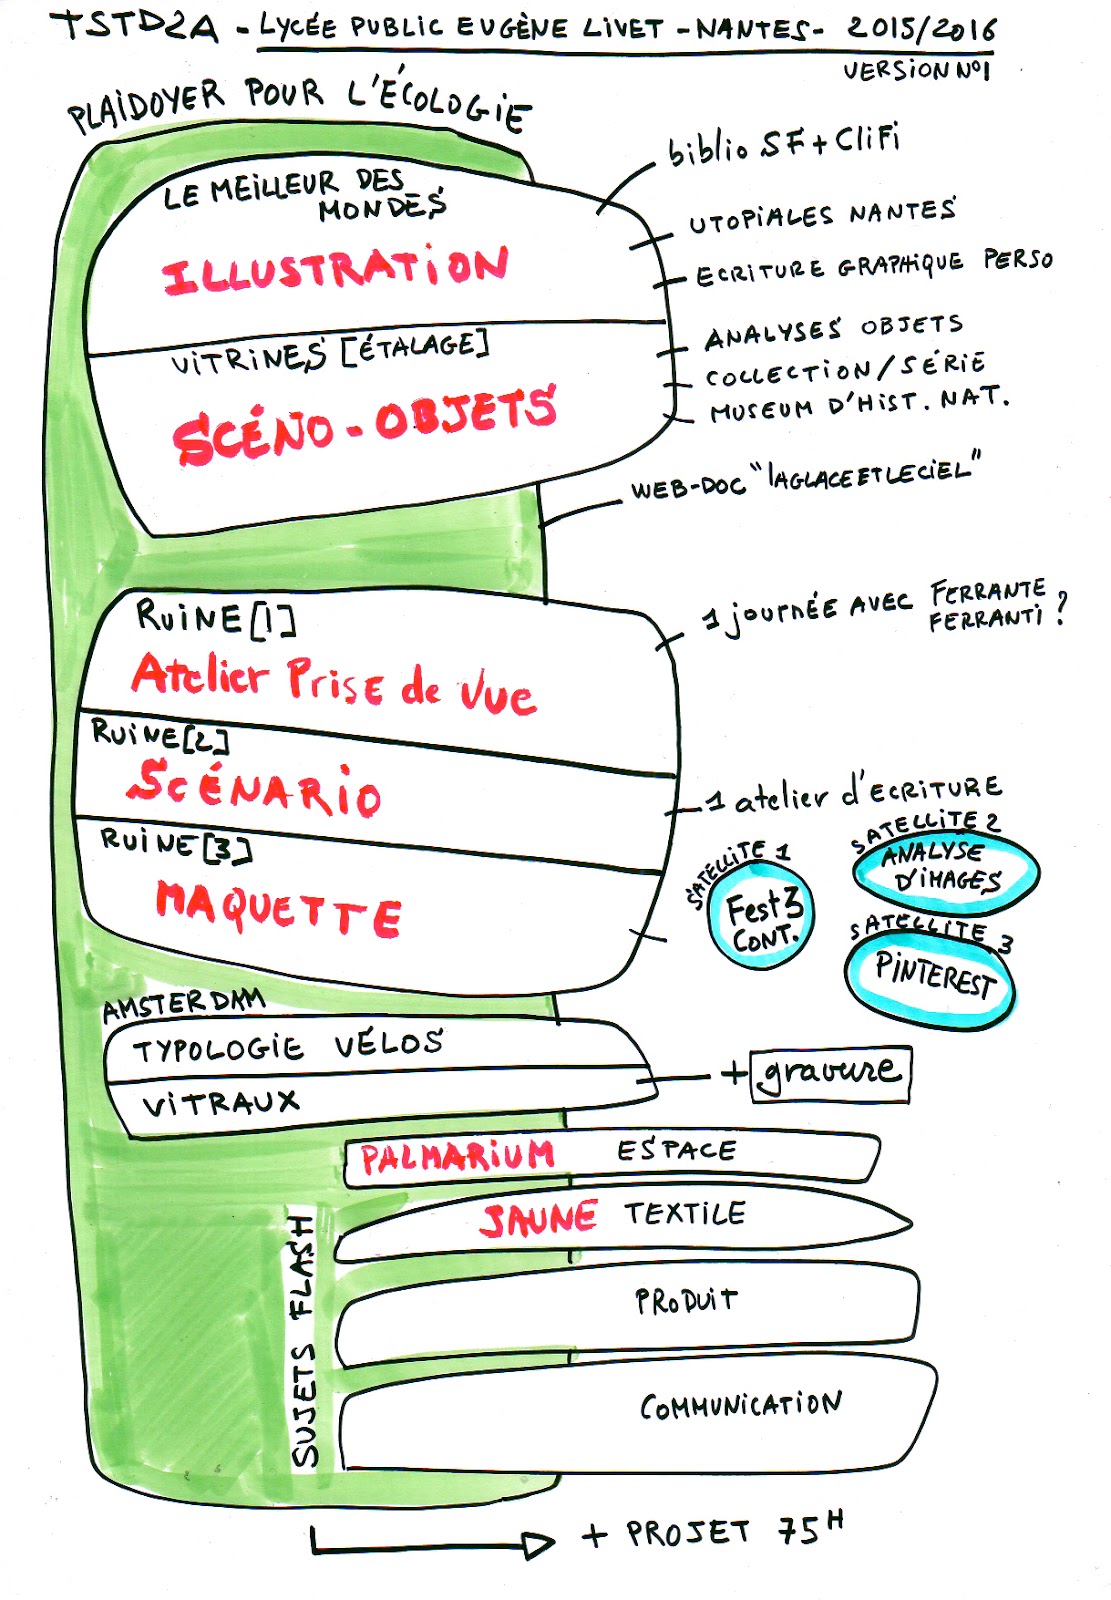 TSTD2A - LYCÉE PUBLIC EUGÈNE LIVET - NANTES - 2015/2016
VERSION N°1
PLAIDOYER POUR L'ÉCOLOGIE
LE MEILLEUR DES
MONDES
ILLUSTRATION
biblio SF + CliFi
UTOPIALES NANTES
ECRITURE GRAPHIQUE PERSO
VITRINES [ÉTALAGE]
SCÉNO-OBJETS
ANALYSES OBJETS
COLLECTION/SÉRIE
MUSEUM D'HIST. NAT.
WEB-DOC "LAGLACEETLECIEL"
RUINE[1]
Atelier Prise de Vue
1 journée AVEC FERRANTE
FERRANTI ?
RUINE[2]
SCÉNARIO
1 atelier d'ECRITURE
RUINE[3]
MAQUETTE
SATELLITE 1
Fest 3
CONT.
SATELLITE 2
ANALYSE
D'IMAGES
SATELLITE 3
PINTEREST
AMSTERDAM
TYPOLOGIE VÉLOS
VITRAUX
+ gravure
PALMARIUM ESPACE
JAUNE TEXTILE
SUJETS FLASH
PRODUIT
COMMUNICATION
+ PROJET 75H